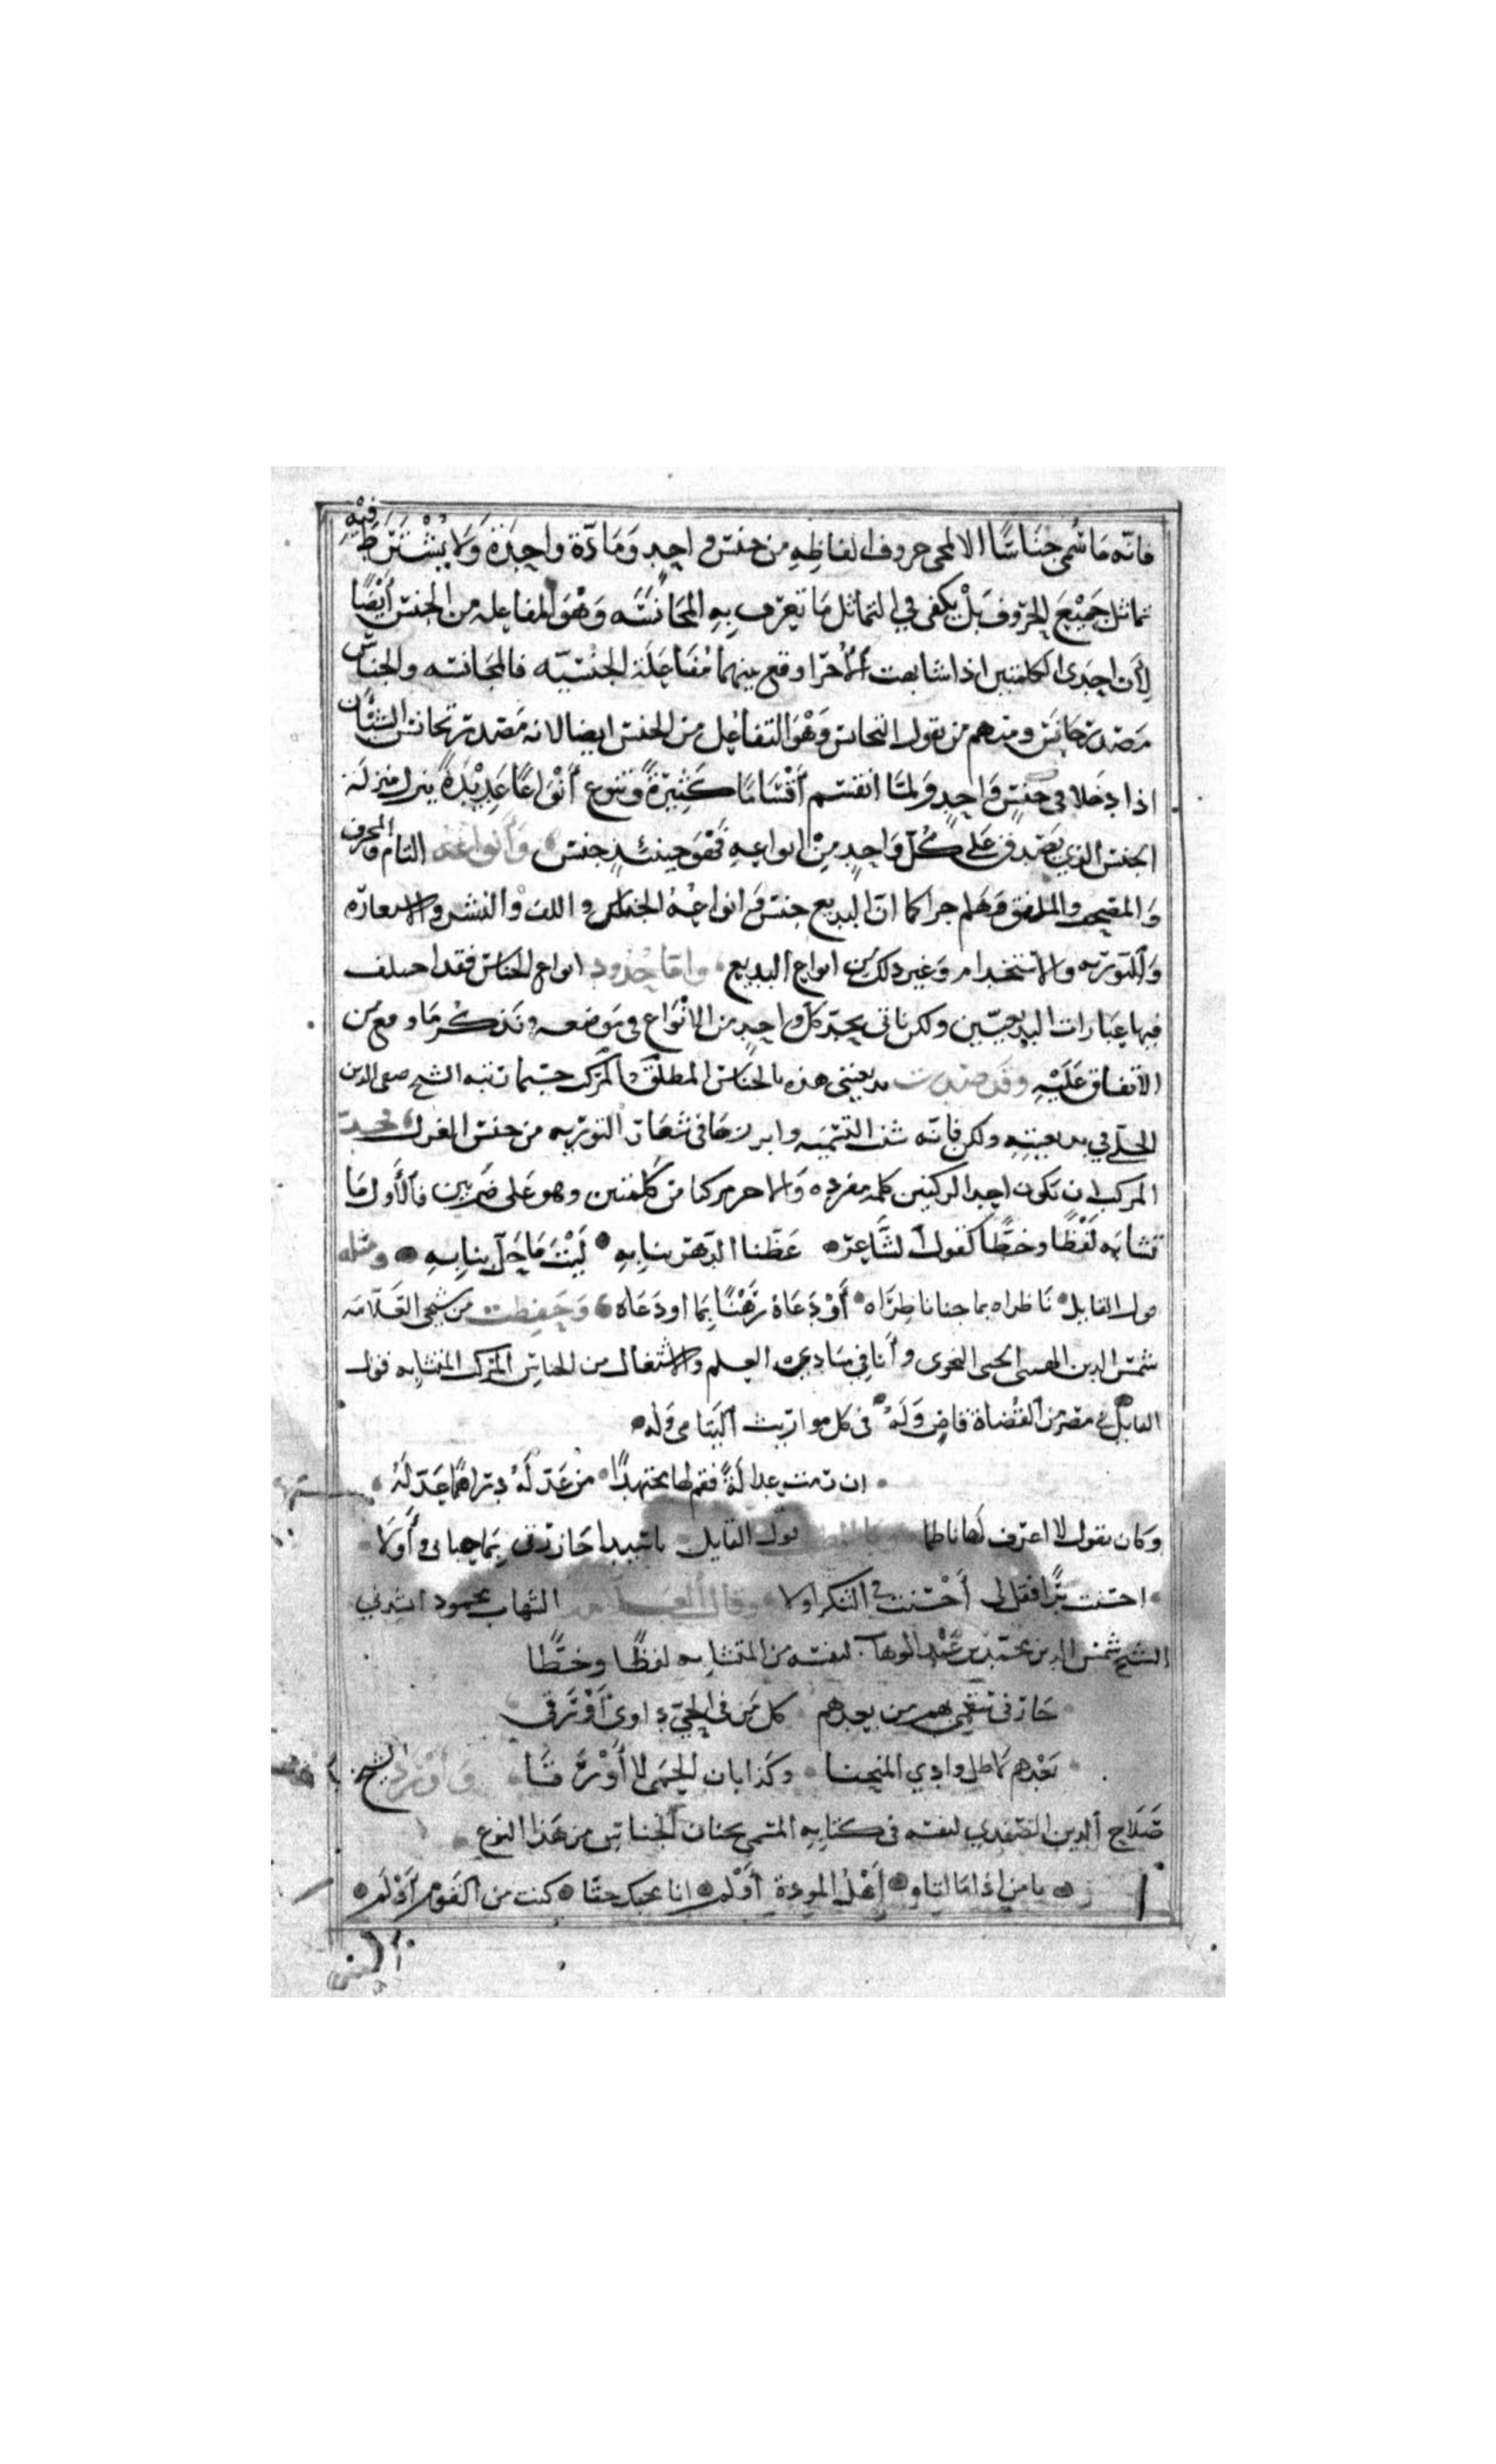 فانه ما سمى جناسا الا لمجى حروف الفاظه من جنس واحد ومادة واحدة ولا يشترط فيه
تماثل جميع الحروف بل يكفى في التماثل ما تعرف به المجانسة وهو المفاعله من الجنس ايضا
لان احدى الكلمتين اذا شابهت الاخرا وقع بينهما مفاعلة الجنسيه فالمجانسه والجناس
مصدر جانس ومنهم من يقول التجانس وهو التفاعل من الجنس ايضا لانه مصدر تجانس الشيئان
اذا دخلا في جنس واحد ولما انقسم اقساما كثيرة وتنوع انواعا عديدة ينزل منزلة
الجنس الذي يصدق على كل واحد من انواعه فهو حينئذ جنس وانواعه التام والمحرف
والمصحف والملفق وهلم جرا كما ان البديع جنس وانواعه الجناس واللف والنشر والاستعارة
والتوريه والاستخدام وغير ذلك من انواع البديع واما حدود انواع الجناس فقد اختلف
فيها عبارات البديعيين ولكن ناتى بحد كل واحد من الانواع في موضعه ونذكر ما وقع من
الاتفاق عليه وقد صدرت بديعيتى هذه بالجناس المطلق والمركب حسبما رتبه الشيخ صفى الدين
الحلي في بديعيته ولكن فاته شنب التسميه وابرازها في شعار التوريه من جنس الغزل فحد
المركب ان تكون احد الركنين كلمه مفرده والاخر مركبا من كلمتين وهو على ضربين فالاول ما
تشابه لفظا وخطا كقول الشاعر عضنا الدهر بنابه ليت ما حل بنابه ومثله
قول القايل ناظراه بما جنا ناظراه او دعاني رهنا بما اودعاه وحفظت من شيخى العلامه
شمس الدين الهيتى الحنفى النحوى وانا في مبادى العلم والاشتغال من الجناس المركب المتشابه قول
القايل في مصر من القضاة قاض وله في كل مواريث اليتامى وله
ان رمت عدالة فقم لها مجتهدا من عد له دراهما عدله
وكان يقول لا اعرف لها ناظما قول القايل يا سيدا حاز رقى بما حبانى واولا
احسنت برا فقل لى احسنت في الشكر اولا وقال العلامه الشهاب محمود انشدنى
الشيخ شمس الدين محمد بن عبد الوهاب لنفسه من المتشابه لفظا وخطا
حار في سقمى من بعدهم كل من في الحي داوى اورقى
بعدهم لا طل وادي المنحنا وكذا بان الحمى لا اورقا واورد الشيخ
صلاح الدين الصفدي لنفسه في كتابه المسمى بجنان الجناس من هذا النوع
يا من اذا ما اتاه اهل المودة اولم انا محبك حقا ان كنت من القوم اولم